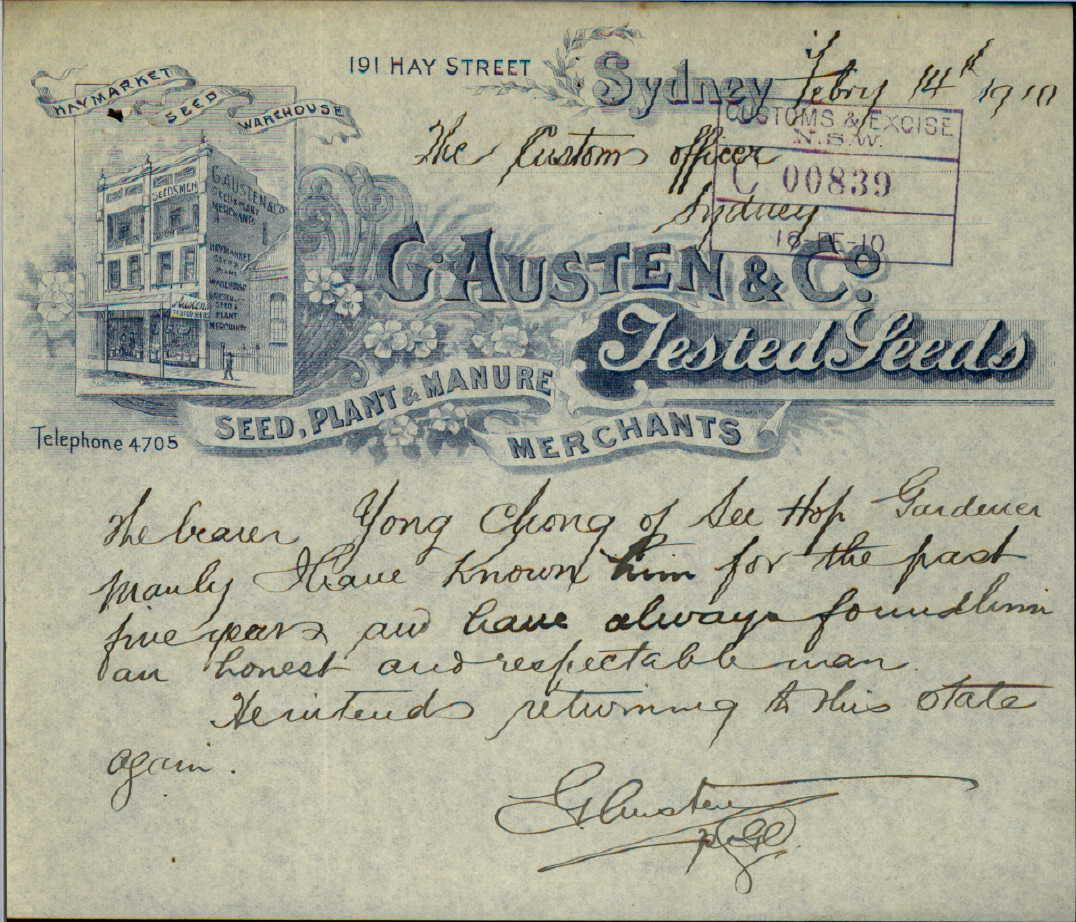 HAYMARKET SEED WAREHOUSE
191 HAY STREET
Sydney Febry 14th 1910
The Customs Officer
Sydney
CUSTOMS & EXCISE
N.S.W.
C 00839
16 FE-10
G. AUSTEN & Co
SEEDSMEN
G. AUSTEN & Co.
Tested Seeds
SEED, PLANT & MANURE
MERCHANTS
Telephone 4705
The bearer Yong Chong of See Hop Gardener
Manly I have known him for the past
five years and have always found him
an honest and respectable man.
He intends returning to this State
again.
G Austen